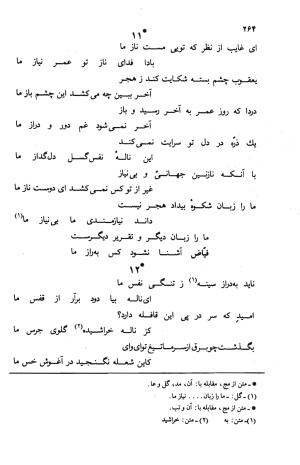 ۲۶۴
۱۱*
ای غایب از نظر که تویی مست ناز ما
بادا فدای ناز تو عمر نیاز ما
یعقوب چشم بسته شکایت کند ز هجر
آخر ببین چه می‌کشد این چشم باز ما
دردا که روز عمر به آخر رسید و باز
آخر نمی‌شود غم دور و دراز ما
یك ذرّه در دل تو سرایت نمی‌کند
این نالۀ نفس‌گسل دلگداز ما
با آنکه نازنین جهانیّ و بی‌نیاز
غیر از تو کس نمی‌کشد ای دوست ناز ما
ما را زبان شکوهٔ بیداد هجر نیست
داند نیازمندی ما بی‌نیاز ما (۱)
ما را زبان دیگر و تقریر دیگرست
فیّاض آشنا نشود کس به‌راز ما
۱۲*
ناید به‌دراز سینه (۱) ز تنگی نفس ما
ای‌ناله بیا دود برآر از قفس ما
امید که سر در پی این قافله دارد؟
کز ناله خراشیده (۲) گلوی جرس ما
بگذشت‌چوبرق‌ازسرما‌تیغ‌تووای‌وای
کاین شعله نگنجید در آغوش خس ما
* ـ متن از مج، مقابله با: آن، مد، گل و ها.
(۱)ـ گل: ـ ما را زبان.... نیاز ما.
* ـ متن از مج، مقابله با: آن و تب.
(۱)ـ متن: به (۲)ـ متن: خراشید